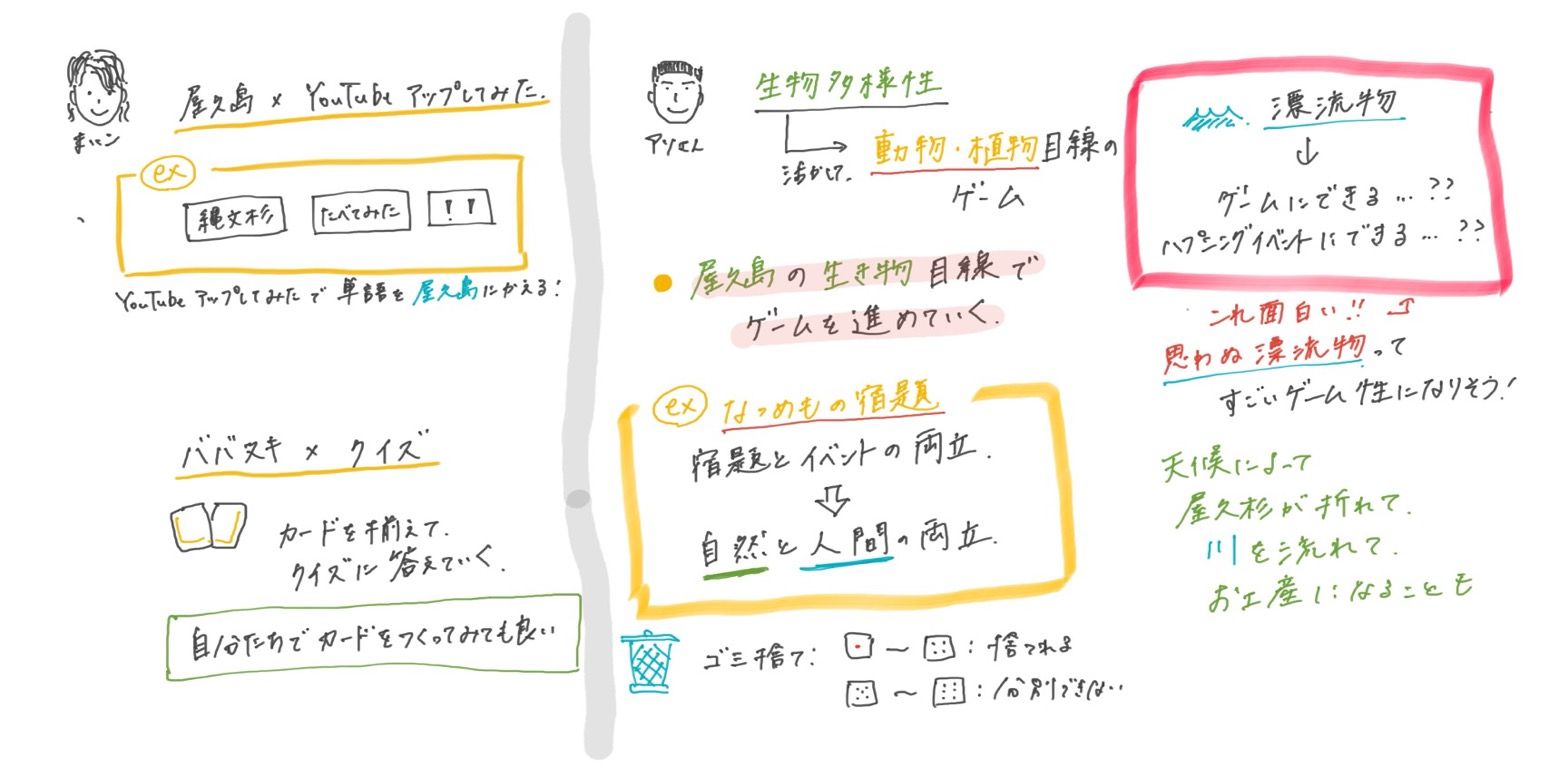 屋久島 × YouTube アップしてみた.
ex
縄文杉 たべてみた !!
YouTube アップしてみたで 単語を 屋久島にかえる!
ババヌキ × クイズ
カードを揃えて.
クイズに答えていく.
自分たちでカードをつくってみても良い
生物多様性
活かして. 動物・植物目線の
ゲーム
屋久島の生き物目線で
ゲームを進めていく.
ex なつめもの宿題
宿題とイベントの両立.
自然と人間の両立.
ゴミ捨て: 〜 : 捨てれる
〜 : 分別できない…
漂流物
↓
ゲームにできる…??
ハプニングイベントにできる…??
これ面白い!!
思わぬ漂流物って
すごいゲーム性になりそう!
天候によって
屋久杉が折れて.
川を流れて.
お土産になることも